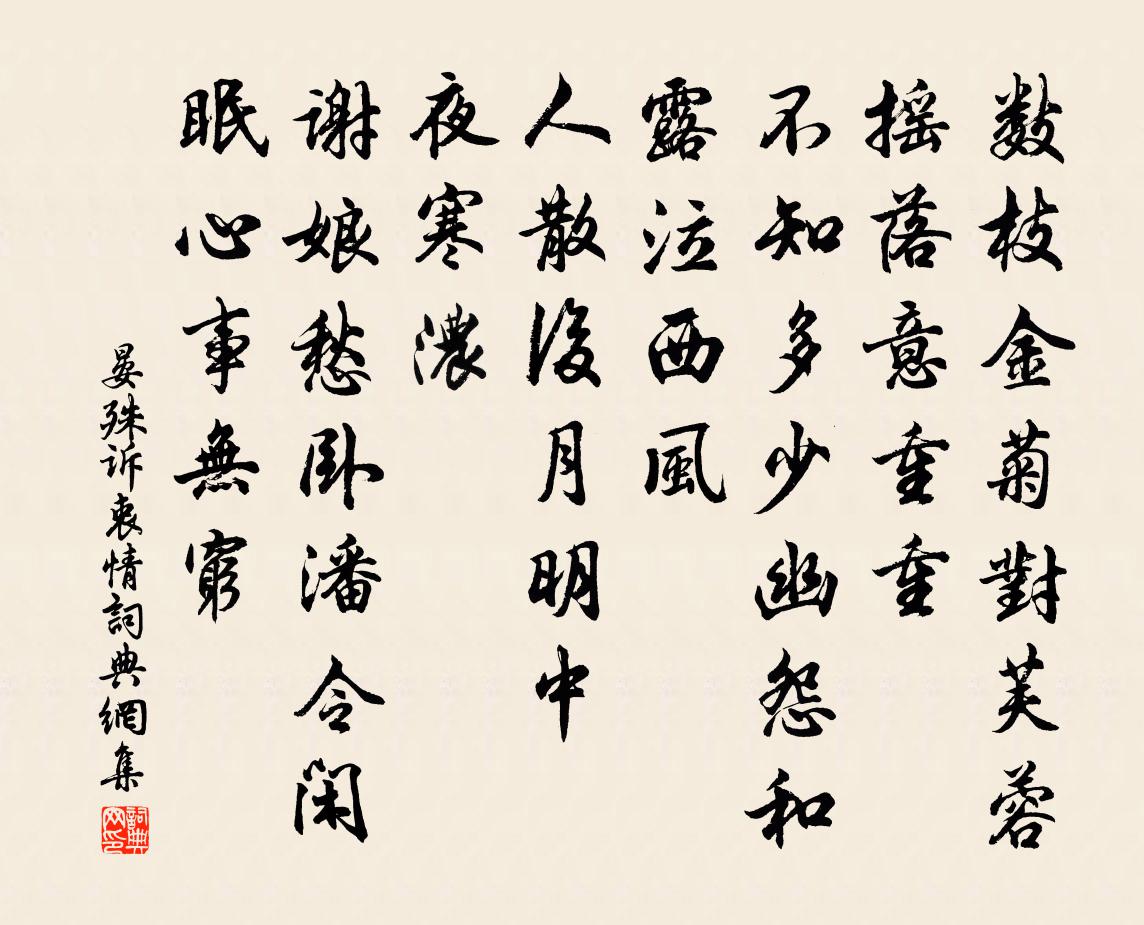 數枝金菊對芙蓉
摇落意重重
不知多少幽怨和
露泣西風
人散後月明中
夜寒濃
謝娘愁卧潘令闲
眠心事無窮
晏殊訴衷情詞典網集
詞典网印